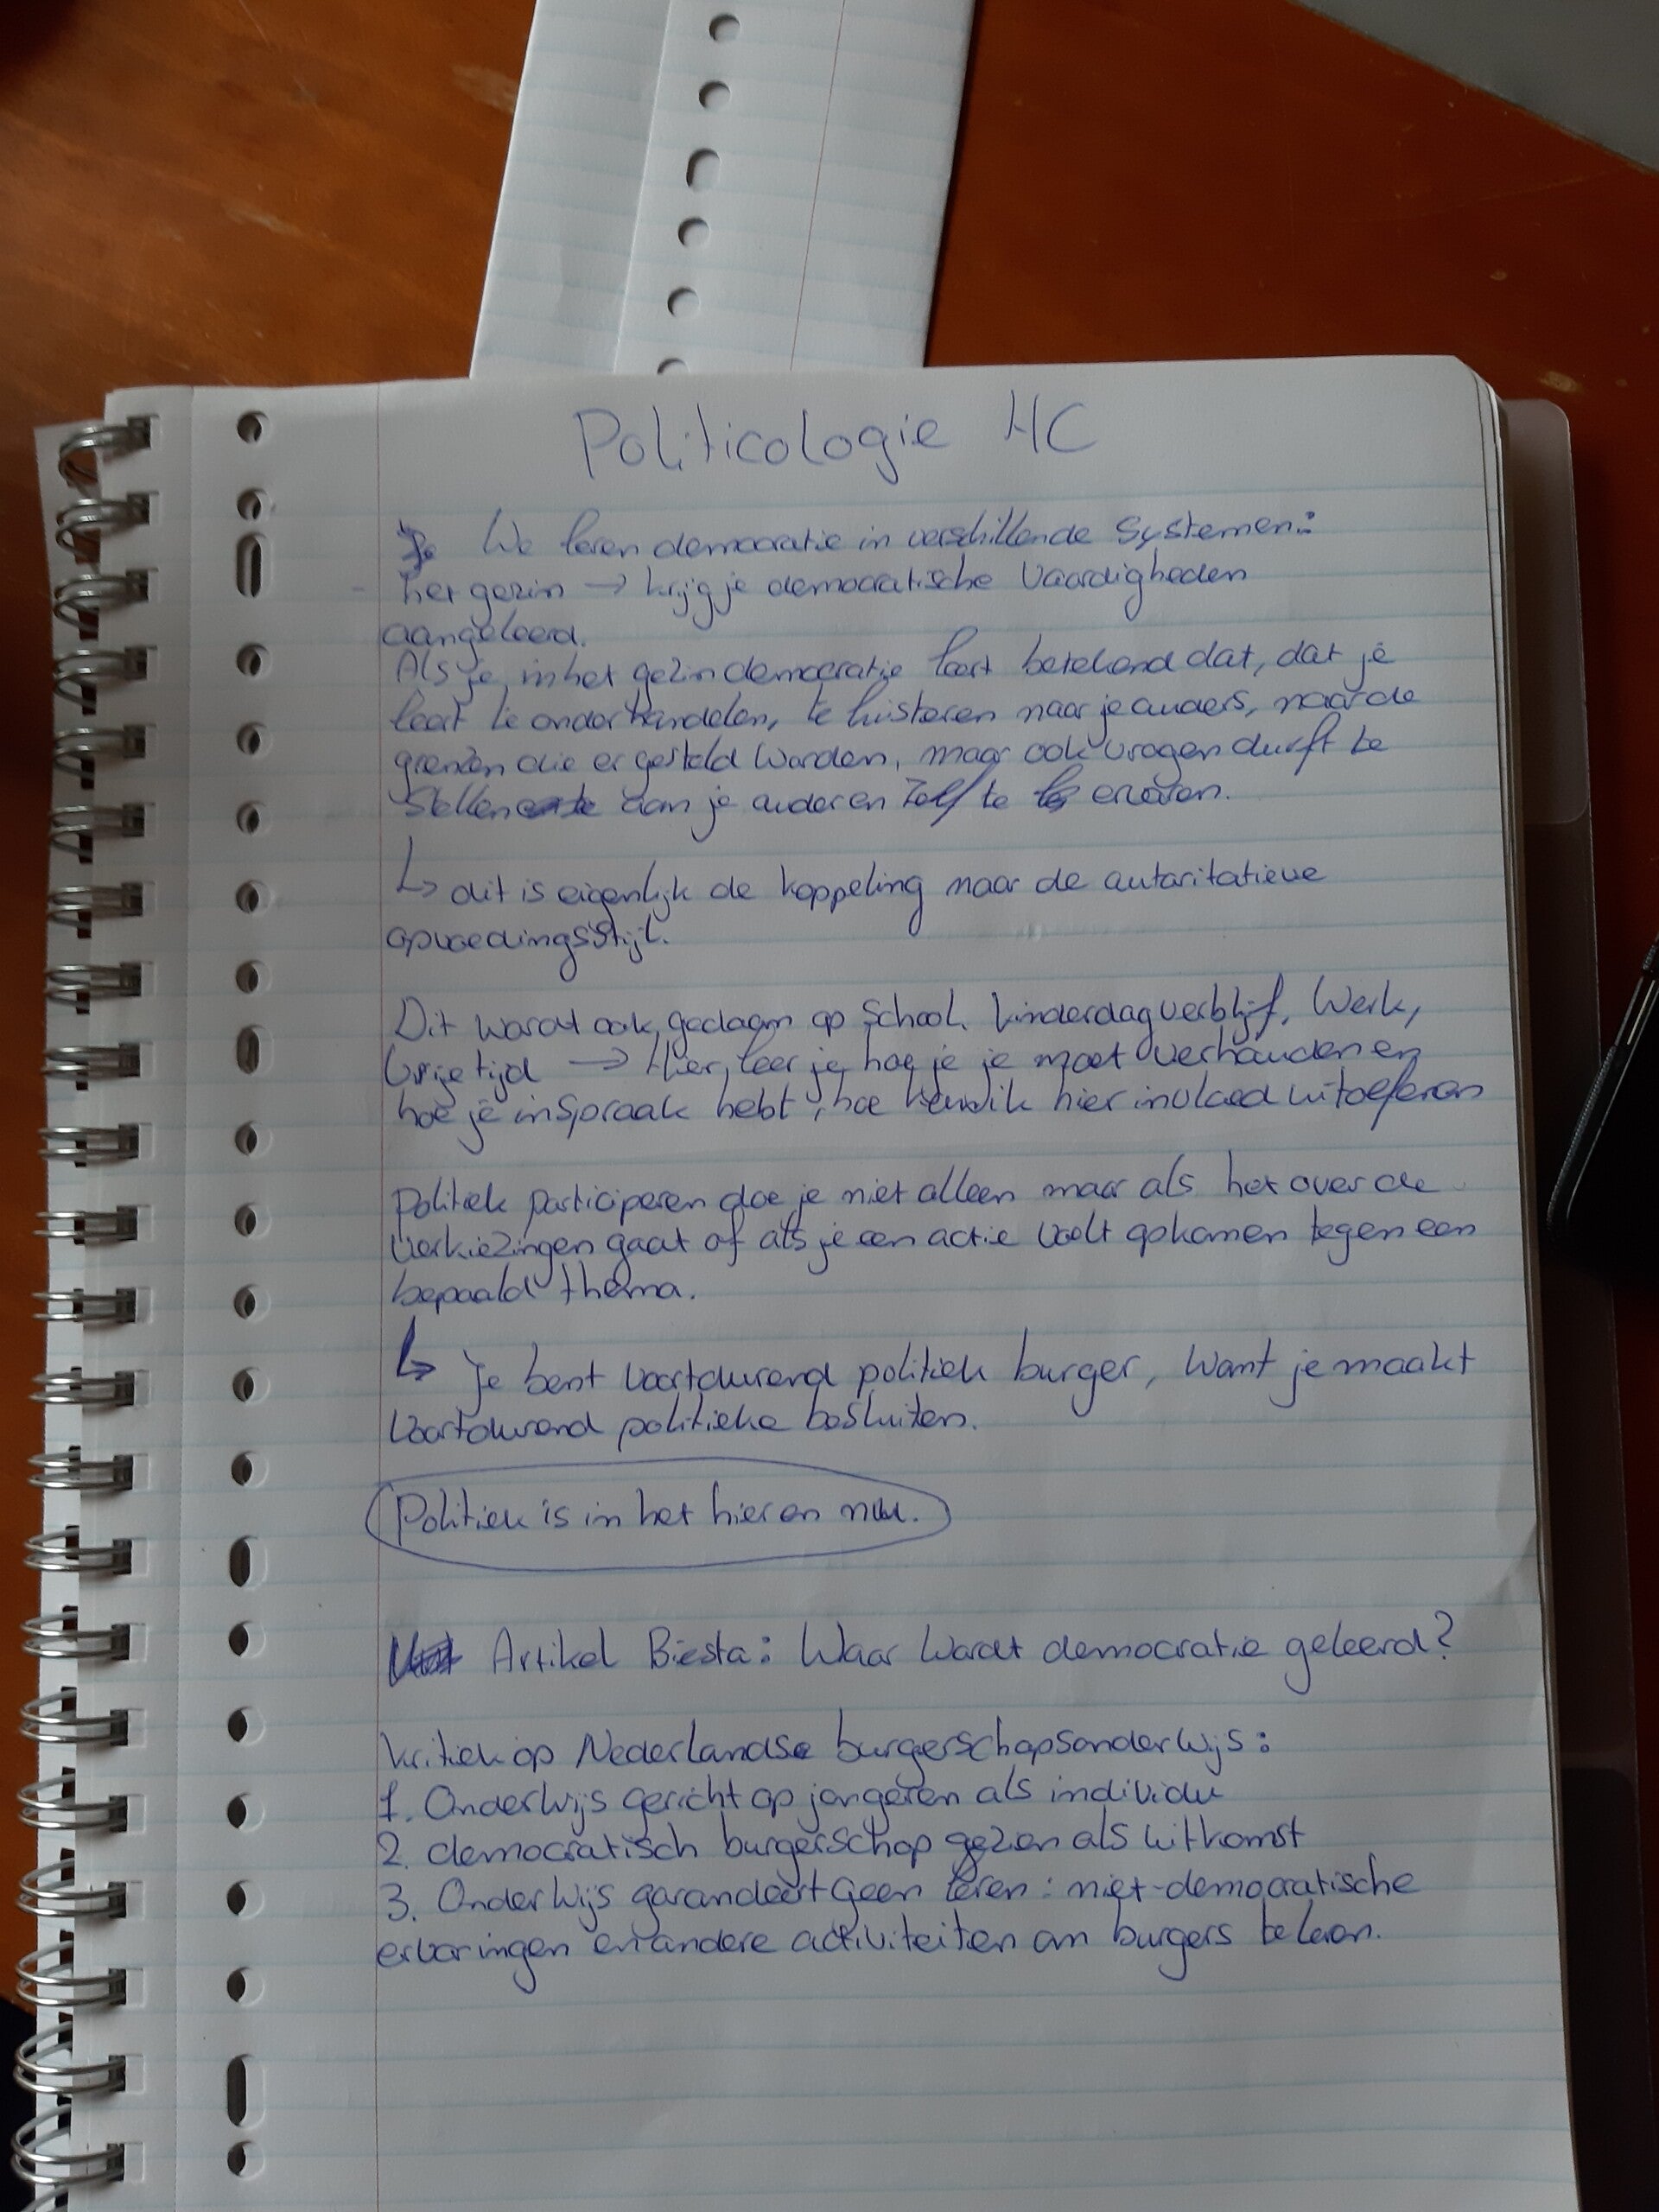 Politicologie HC
We leren democratie in verschillende systemen:
- het gezin → krijg je democratische vaardigheden
aangeleerd.
Als je in het gezin democratie leert betekend dat, dat je
leert te onderhandelen, te luisteren naar je ouders, naar de
grenzen die er gesteld worden, maar ook vragen durft te
stellen aan je ouders en zelf te ervaren.
↳ dit is eigenlijk de koppeling naar de autoritatieve
opvoedingsstijl.
Dit wordt ook gedaan op school, kinderdagverblijf, werk,
vrije tijd → Hier leer je hoe je je moet verhouden en
hoe je inspraak hebt, hoe kan ik hier invloed uitoefenen
Politiek participeren doe je niet alleen maar als het over de
verkiezingen gaat of als je een actie voelt opkomen tegen een
bepaald thema.
↳ Je bent voortdurend politiek burger, want je maakt
voortdurend politieke besluiten.
Politiek is in het hier en nu.
Artikel Biesta: Waar wordt democratie geleerd?
Kritiek op Nederlandse burgerschapsonderwijs:
1. Onderwijs gericht op jongeren als individu
2. democratisch burgerschap gezien als uitkomst
3. Onderwijs garandeert geen leren: niet-democratische
ervaringen en andere activiteiten om burgers te leren.